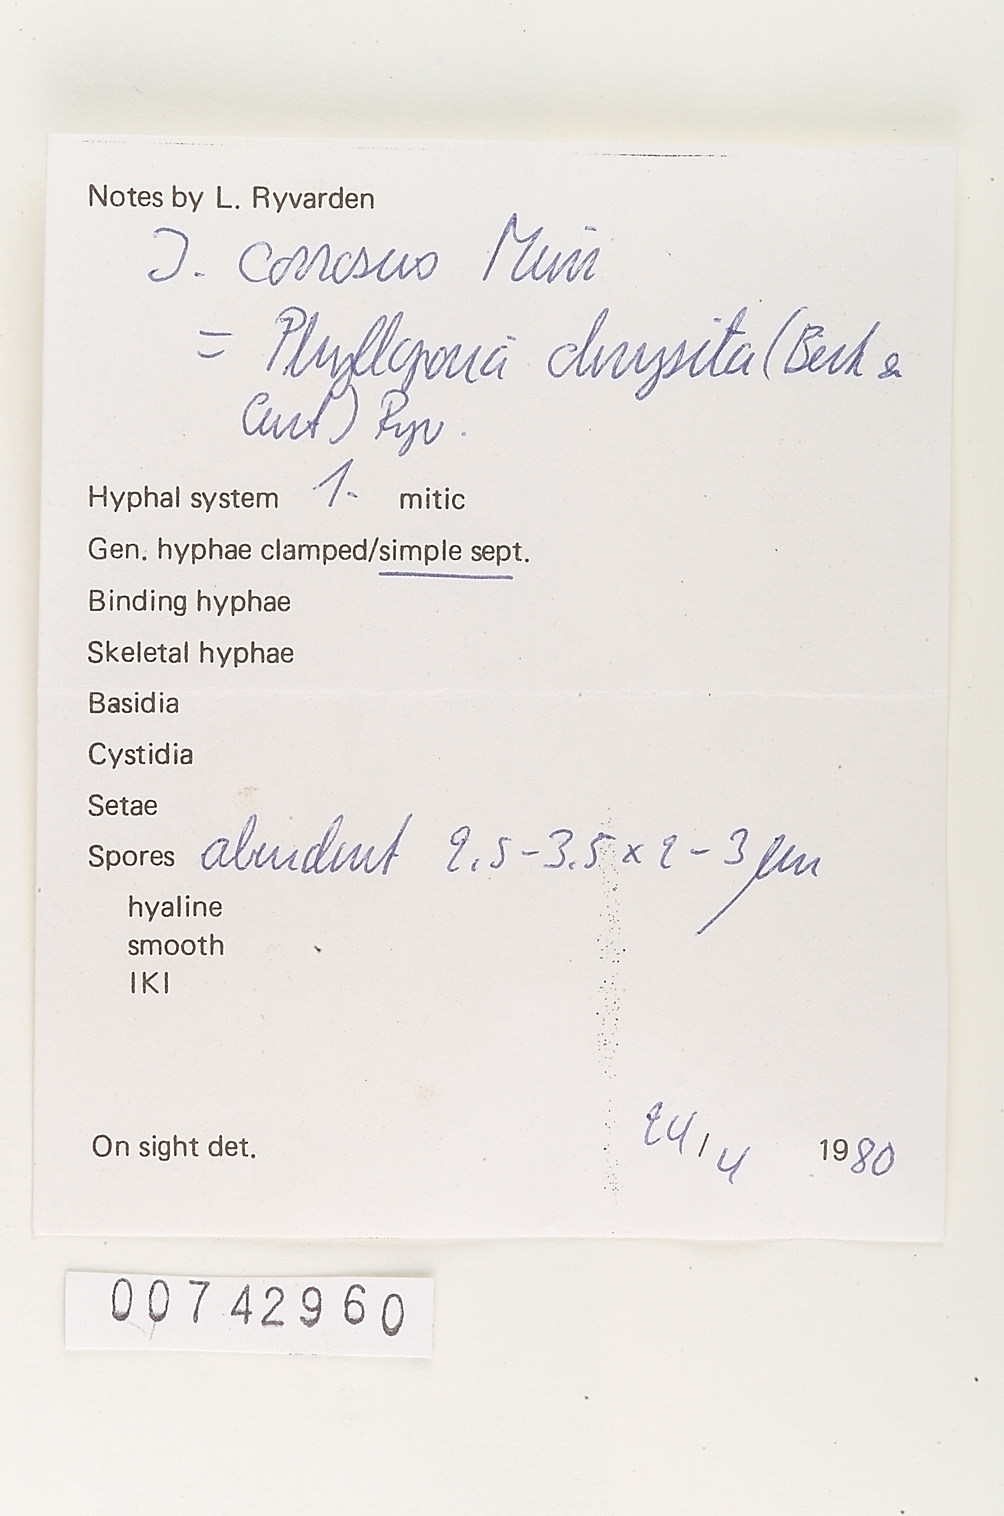 Notes by L. Ryvarden
I. corrosus Murr
= Phylloporia chrysita (Berk &
Curt) Ryv.
Hyphal system 1. mitic
Gen. hyphae clamped/simple sept.
Binding hyphae
Skeletal hyphae
Basidia
Cystidia
Setae
Spores abundent 2.5-3.5 x 2-3 µm
hyaline
smooth
IKI
On sight det. 24/4 1980
00742960